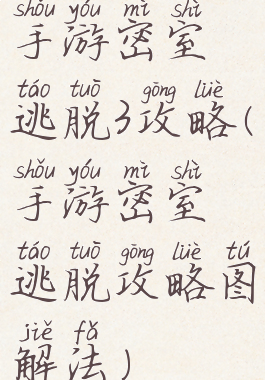 shǒu yóu mì shì
手游密室
táo tuō gōng lüè
逃脱3攻略(
shǒu yóu mì shì
手游密室
táo tuō gōng lüè tú
逃脱攻略图
jiě fǎ
解法)